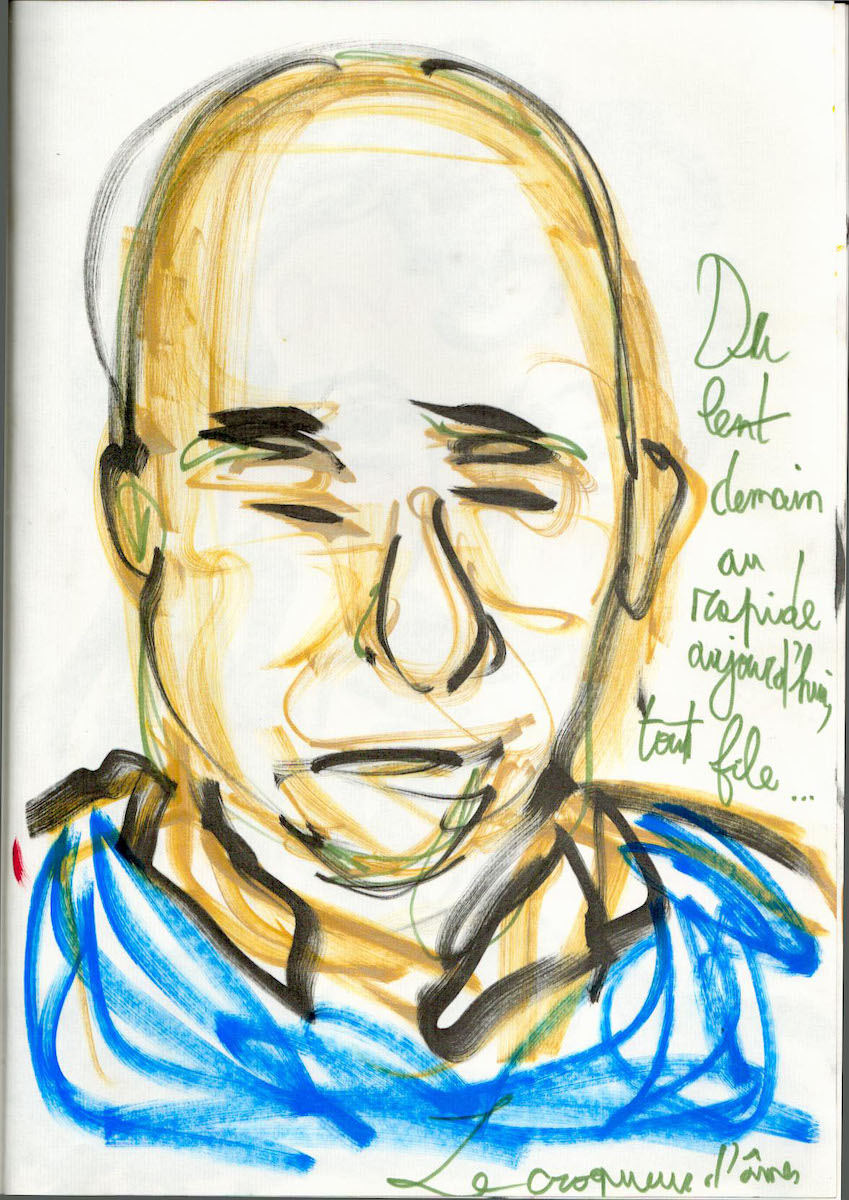 Du
lent
demain
au
rapide
aujourd'hui,
tout file...
Le croqueur d'âmes